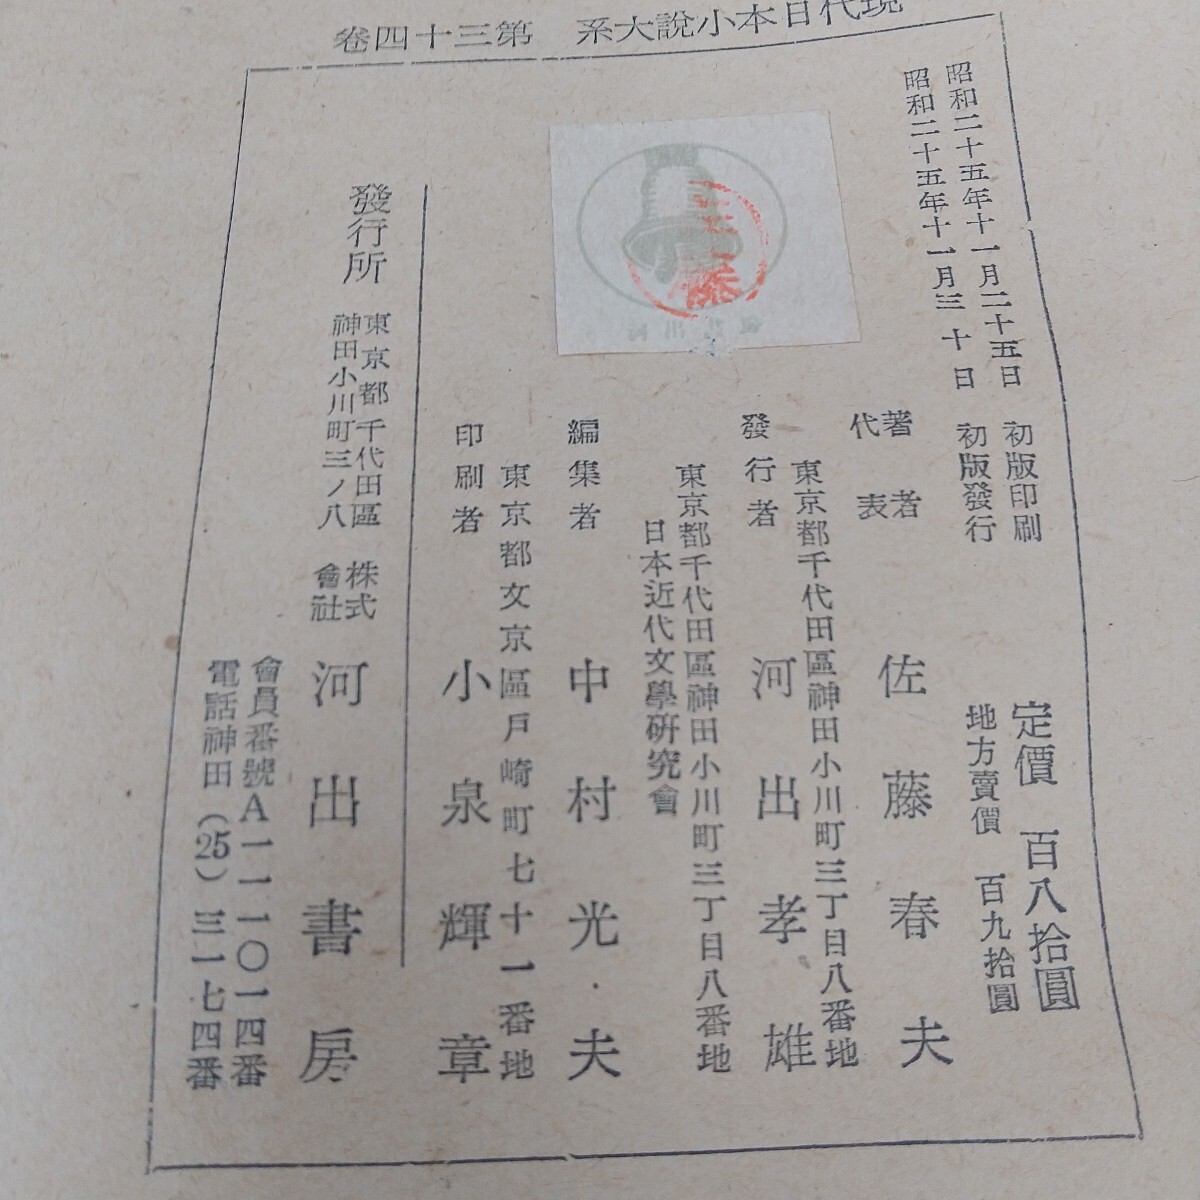 現代日本小說大系　第三十四卷
昭和二十五年十一月二十五日　初版印刷
昭和二十五年十一月三十日　初版發行
定價　百八拾圓
地方賣價　百九拾圓
著者代表　佐藤春夫
東京都千代田區神田小川町三丁目八番地
發行者　河出孝雄
東京都千代田區神田小川町三丁目八番地
日本近代文學硏究會
編集者　中村光夫
東京都文京區戸崎町七十一番地
印刷者　小泉輝章
發行所
東京都千代田區
神田小川町三ノ八
株式會社　河出書房
會員番號A一一一〇一四番
電話神田（25）三一七四番